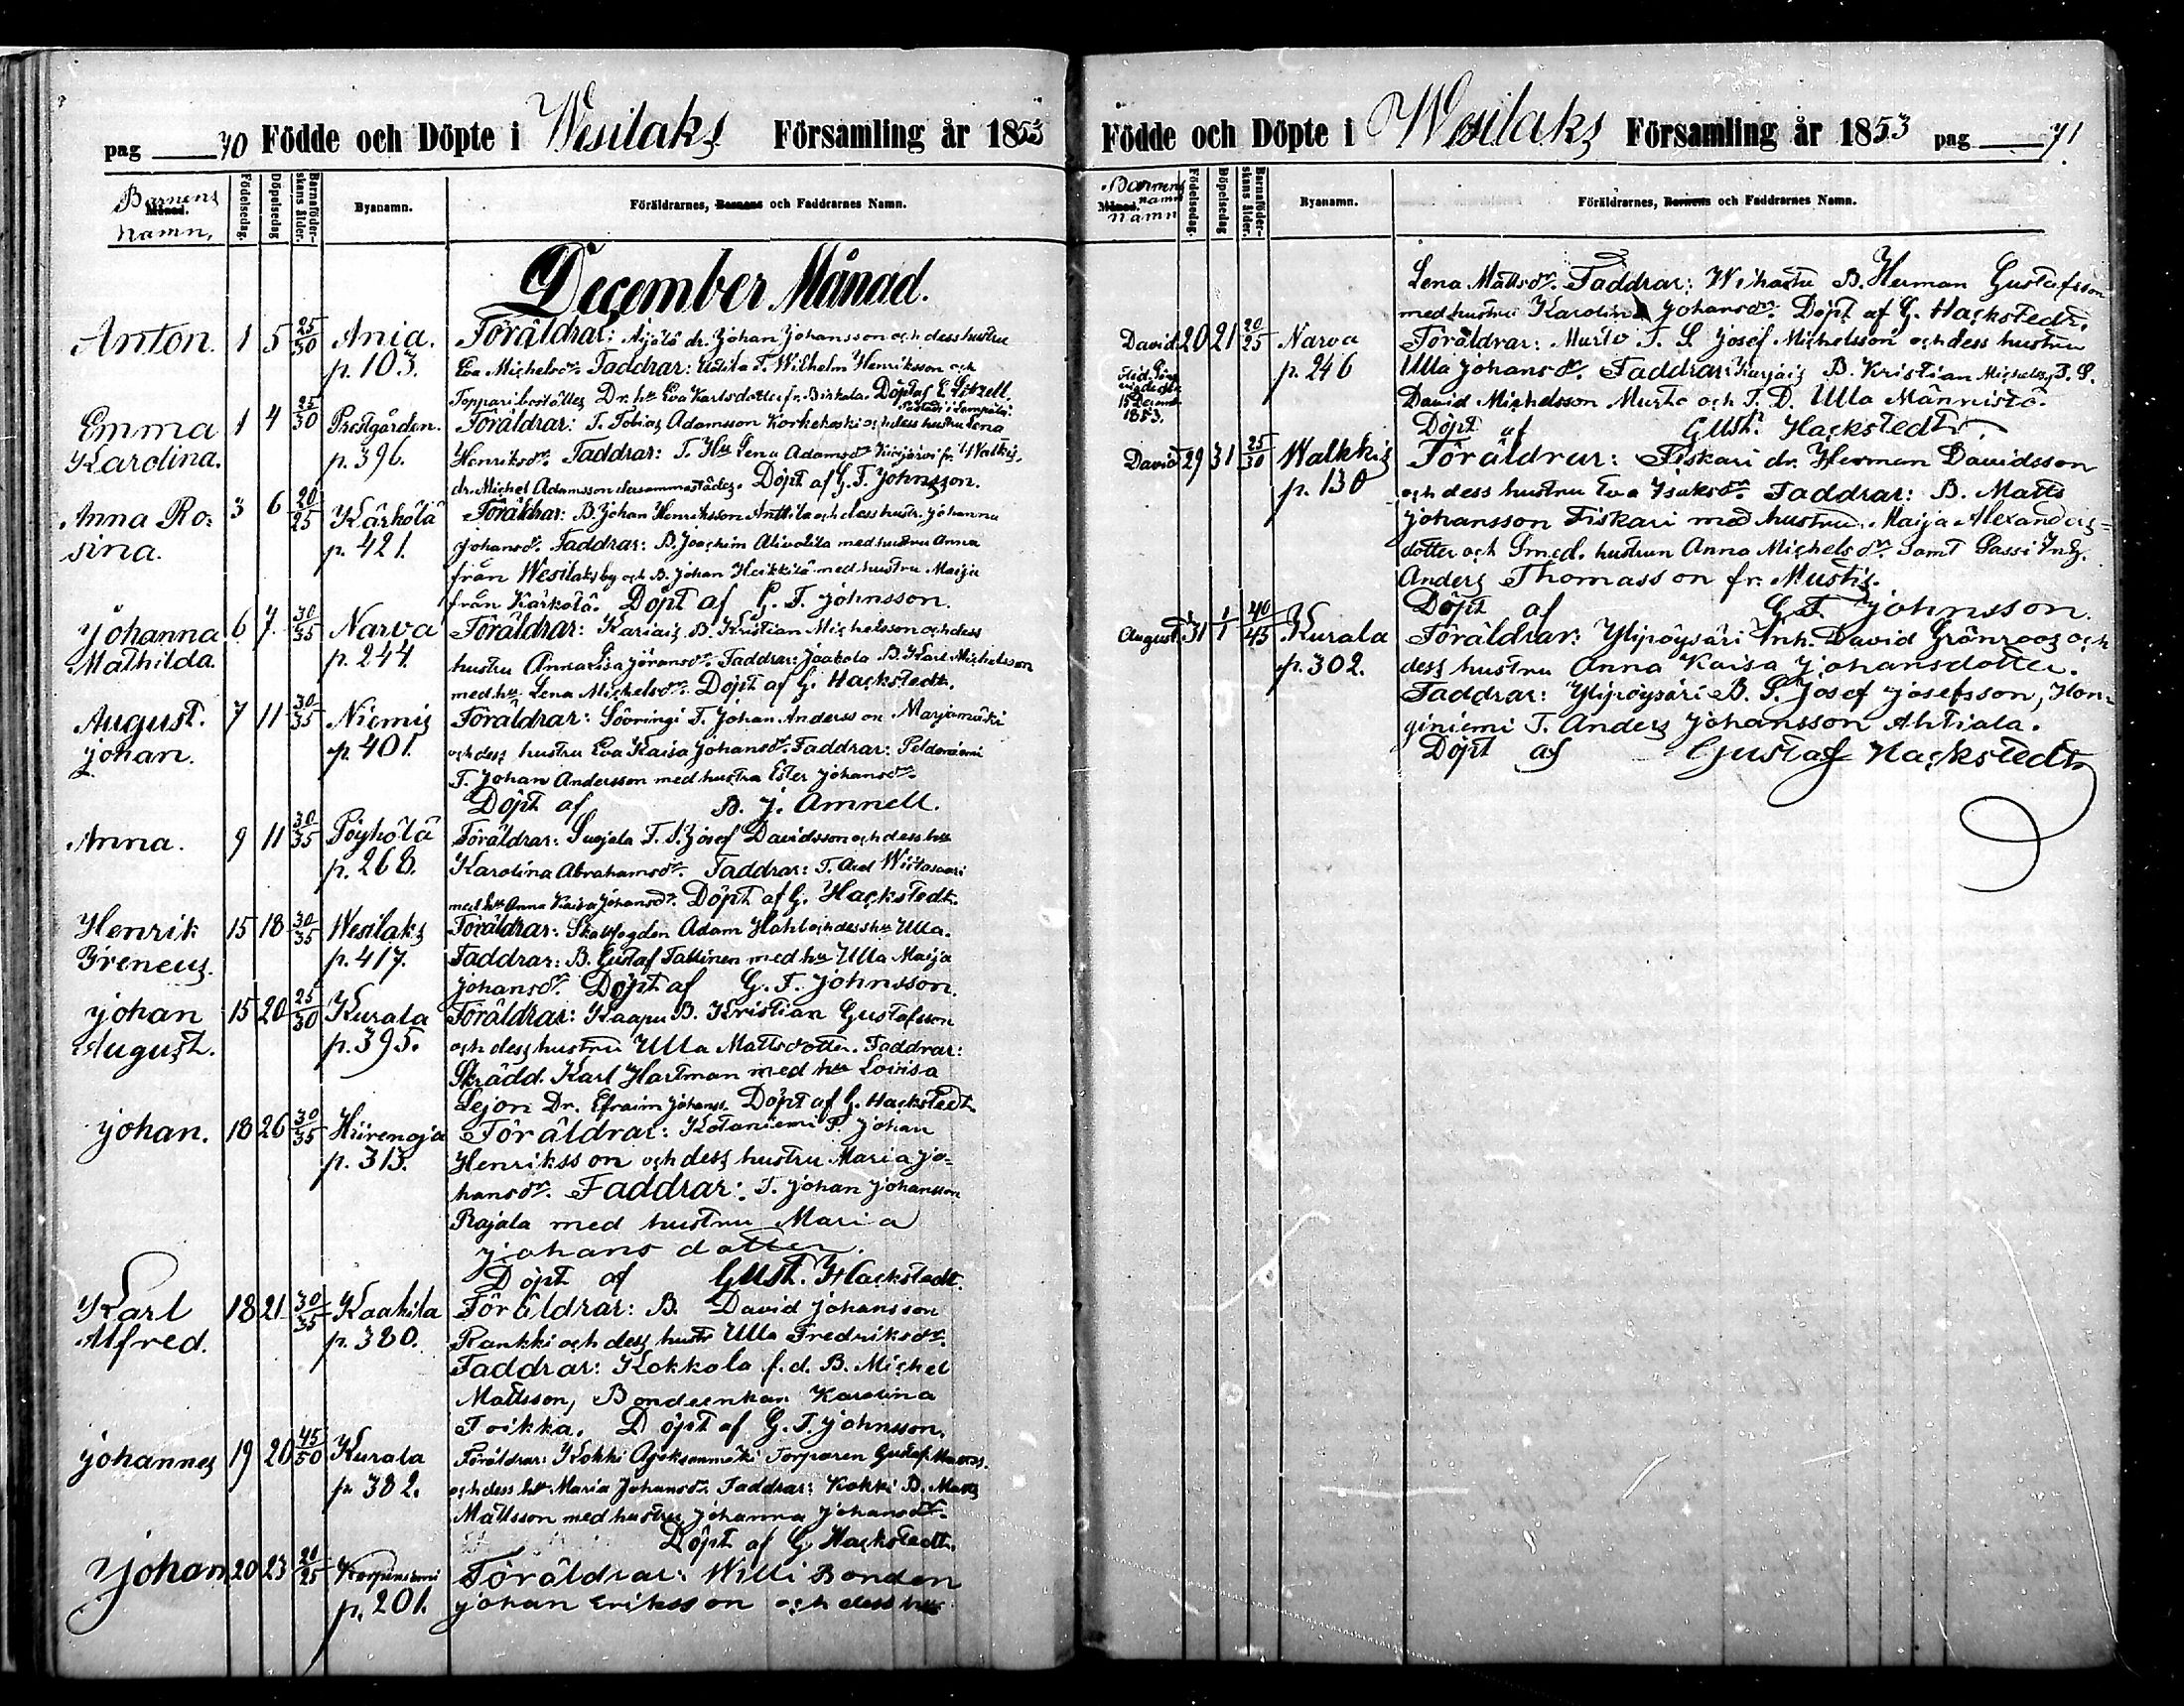 pag 70 Födde och Döpte i Wesilaks Församling år 1853
Barnens Månad. Namn.
Födelsedag.
Döpelsedag
Barnaföderskans ålder.
Byanamn.
Föräldrarnes, Barnens och Faddrarnes Namn.
December Månad.
Anton. 1 5 25/30 Ania. Föräldrar: Aijälä dr. Johan Johansson och dess hustru
p. 103. Eva Michelsdr. Faddrar: Uotila T. Wilhelm Henriksson och
Toppari Dr. hu Eva Karlsdotter fr. Birkala. Döpt af E.
Emma 1 4 25/30 Prestgården. Föräldrar: T. Tobias Adamsson Korkekoski och dess hustru Lena
Karolina. p. 396. Henriksdr. Faddrar: T. Hu Lena Adamsdr fr. Walkkis,
dr. Michel Adamsson dersammastädes. Döpt af G. T. Johnsson.
Anna Ro= 3 6 20/25 Kärkölä Föräldrar: B. Johan Henriksson Anttila och dess hustr. Johanna
sina. p. 421. Johansdr. Faddrar: B. Joachim Alivotila med hustru Anna
från Wesilaks by och B. Johan Heikkilä med hustru Maija
från Kärkölä. Döpt af G. T. Johnsson.
Johanna 6 7. 30/35 Narva Föräldrar: Kariais B. Kristian Michelsson och dess
Mathilda. p. 244. hustru Annalisa Göransdr. Faddrar: Jaakola B. Karl Michelsson
med hu Lena Michelsdr. Döpt af G. Hackstedt.
August. 7 11 30/35 Niemis Föräldrar: Sööringi T. Johan Andersson Marjamäki
Johan. p. 401. och dess hustru Eva Kaisa Johansdr. Faddrar: Peldoniemi
T. Johan Andersson med hustru Ester Johansdr.
Döpt af B. J. Amnell.
Anna. 9 11 30/35 Pöyhölä Föräldrar: Suojala T. S. Josef Davidsson och dess hu
p. 268. Karolina Abrahamsdr. Faddrar: T. Axel Wiitasaari
med hu Anna Kaisa Johansdr. Döpt af G. Hackstedt.
Henrik 15 18 30/35 Wesilaks Föräldrar: Skallfogden Adam Hahl och dess hu Ulla.
Ireneus. p. 417. Faddrar: B. Gustaf Tallinen med hu Ulla Maija
Johansdr. Döpt af G. T. Johnsson.
Johan 15 20 25/30 Kurala Föräldrar: Kaapu B. Kristian Gustafsson
August. p. 395. och dess hustru Ulla Mattsdotter. Faddrar:
Skrädd. Karl Hartman med hu Lovisa
Lejon Dr. Efraim Johanss. Döpt af G. Hackstedt.
Johan. 18 26 30/35 Hiirenoja Föräldrar: Kotaniemi T. Johan
p. 313. Henriksson och dess hustru Maria Jo=
hansdr. Faddrar: T. Johan Johansson
Rajala med hustru Maria
Johansdotter.
Döpt af Gust. Hackstedt.
Karl 18 21 30/35 Kaakila Föräldrar: B. David Johansson
Alfred. p. 380. Rankki och dess hustr Ulla Fredriksdr.
Faddrar: Kokkola f. d. B. Michel
Mattsson, Bondeenkan Karolina
Toikka. Döpt af G. T. Johnsson.
Johannes 19 20 45/50 Kurala Föräldrar: Kokki Torparen Gustaf Matts.
p. 382. och dess hu Maria Johansdr. Faddrar: Kokki B. Matts
Mattsson med hustru Johanna Johansdr.
Döpt af G. Hackstedt.
Johan 20 23 20/25 Korpiniemi Föräldrar: Willi Bonden
p. 201. Johan Eriksson och dess hu
Födde och Döpte i Wesilaks Församling år 1853 pag 71.
Barnens namn Månad. Namn
Födelsedag.
Döpelsedag
Barnaföderskans ålder.
Byanamn.
Föräldrarnes, Barnens och Faddrarnes Namn.
Lena Mattsdr. Faddrar: B. Herman Gustafsson
med hustru Karolina Johansdr. Döpt af G. Hackstedt.
David 20 21 20/25 Narva Föräldrar: Murto T. S. Josef Michelsson och dess hustru
15 Decemb 1853. p. 246 Ulla Johansdr. Faddrar: Karjais B. Kristian Michels., T. S.
David Michelsson Murto och T. D. Ulla Männistö.
Döpt af Gust. Hackstedt.
David 29 31 25/30 Walkkis Föräldrar: Fiskari dr. Herman Davidsson
p. 130 och dess hustru Eva Isaksdr. Faddrar: B. Matts
Johansson Fiskari med hustru Maija Alexanders=
dotter och Smed. hustrun Anna Michelsdr. samt Passi Ing.
Anders Thomasson fr. Mustis.
Döpt af G T Johnsson.
August. 31 1/1 40/45 Kurala Föräldrar: Ylipöysäri Inh. David Grönroos och
p. 302. dess hustru Anna Kaisa Johansdotter.
Faddrar: Ylipöysäri B. S. Josef Josefsson, Hon=
giniemi T. Anders Johansson Ahtiala.
Döpt af Gustaf Hackstedt